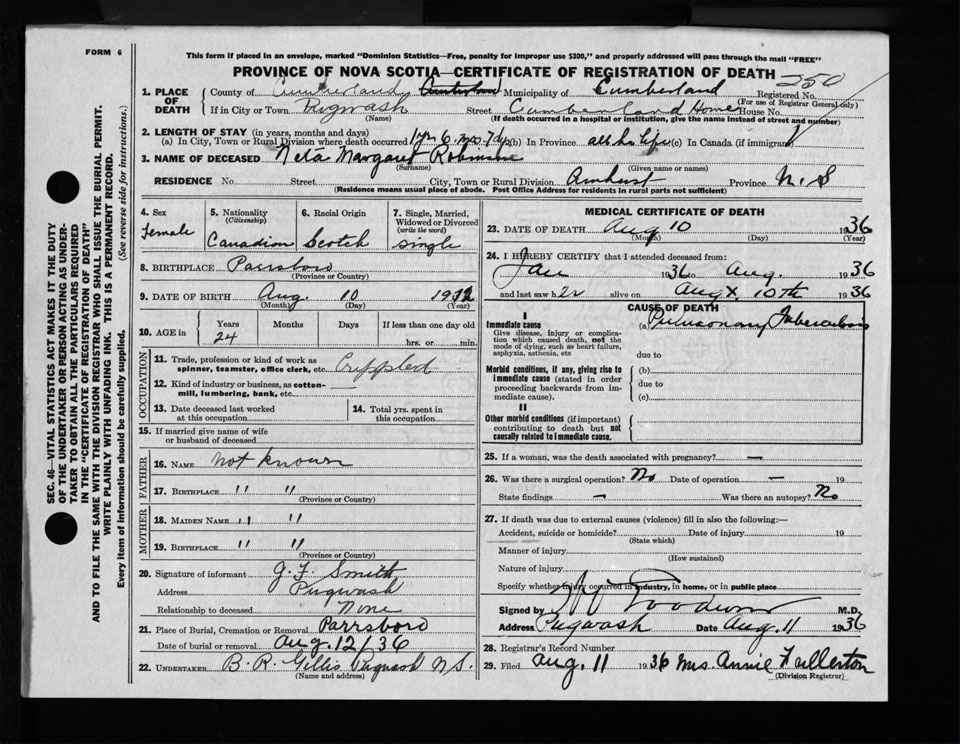 FORM 6
This form if placed in an envelope, marked "Dominion Statistics—Free, penalty for improper use $300," and properly addressed will pass through the mail "FREE"
PROVINCE OF NOVA SCOTIA—CERTIFICATE OF REGISTRATION OF DEATH
250
SEC. 46—VITAL STATISTICS ACT MAKES IT THE DUTY
OF THE UNDERTAKER OR PERSON ACTING AS UNDER-
TAKER TO OBTAIN ALL THE PARTICULARS REQUIRED
IN THE "CERTIFICATE OF REGISTRATION OF DEATH"
AND TO FILE THE SAME WITH THE DIVISION REGISTRAR WHO SHALL ISSUE THE BURIAL PERMIT.
WRITE PLAINLY WITH UNFADING INK. THIS IS A PERMANENT RECORD.
Every item of information should be carefully supplied. (See reverse side for instructions.)
1. PLACE OF DEATH
County of Cumberland Municipality of Cumberland Registered No.
(For use of Registrar General only)
If in City or Town Pugwash Street Cumberland Home House No.
(Name) (If death occurred in a hospital or institution, give the name instead of street and number)
2. LENGTH OF STAY (in years, months and days)
(a) In City, Town or Rural Division where death occurred 1 yr 6 mos 7 dys (b) In Province all her life (c) In Canada (if immigrant)
3. NAME OF DECEASED Neta Margaret
(Surname) (Given name or names)
RESIDENCE No. Street City, Town or Rural Division Amherst Province N.S
(Residence means usual place of abode. Post Office Address for residents in rural parts not sufficient)
4. Sex
Female
5. Nationality
(Citizenship)
Canadian
6. Racial Origin
Scotch
7. Single, Married,
Widowed or Divorced
(write the word)
single
8. BIRTHPLACE Parrsboro
(Province or Country)
9. DATE OF BIRTH Aug. 10 1912
(Month) (Day) (Year)
10. AGE in
Years Months Days If less than one day old
24 hrs. or min.
OCCUPATION
11. Trade, profession or kind of work as
spinner, teamster, office clerk, etc. Crippled
12. Kind of industry or business, as cotton-
mill, lumbering, bank, etc.
13. Date deceased last worked
at this occupation
14. Total yrs. spent in
this occupation
15. If married give name of wife
or husband of deceased
FATHER
16. NAME not known
17. BIRTHPLACE " "
(Province or Country)
MOTHER
18. MAIDEN NAME " "
19. BIRTHPLACE " "
(Province or Country)
20. Signature of informant J. F. Smith
Address Pugwash
Relationship to deceased None
21. Place of Burial, Cremation or Removal Parrsboro
Date of burial or removal Aug. 12/36
22. UNDERTAKER B. R. Gillis Pugwash N.S.
(Name and address)
MEDICAL CERTIFICATE OF DEATH
23. DATE OF DEATH Aug 10 1936
(Month) (Day) (Year)
24. I HEREBY CERTIFY that I attended deceased from:
Jan 1936 to Aug. 1936
and last saw her alive on Aug 10th 1936
CAUSE OF DEATH
I
Immediate cause (a) Pulmonary Tuberculosis
Give disease, injury or complica-
tion which caused death, not the
mode of dying, such as heart failure,
asphyxia, asthenia, etc
due to
Morbid conditions, if any, giving rise to
immediate cause (stated in order
proceeding backwards from im-
mediate cause).
(b)
due to
(c)
II
Other morbid conditions (if important)
contributing to death but not
causally related to immediate cause.
25. If a woman, was the death associated with pregnancy? —
26. Was there a surgical operation? No Date of operation — 19
State findings — Was there an autopsy? No
27. If death was due to external causes (violence) fill in also the following:—
Accident, suicide or homicide? Date of injury 19
(State which)
Manner of injury
(How sustained)
Nature of injury
Specify whether injury occurred in industry, in home, or in public place
Signed by Goodwin M.D.
Address Pugwash Date Aug. 11 1936
28. Registrar's Record Number
29. Filed Aug. 11 1936 Mrs. Annie Fullerton
(Division Registrar)